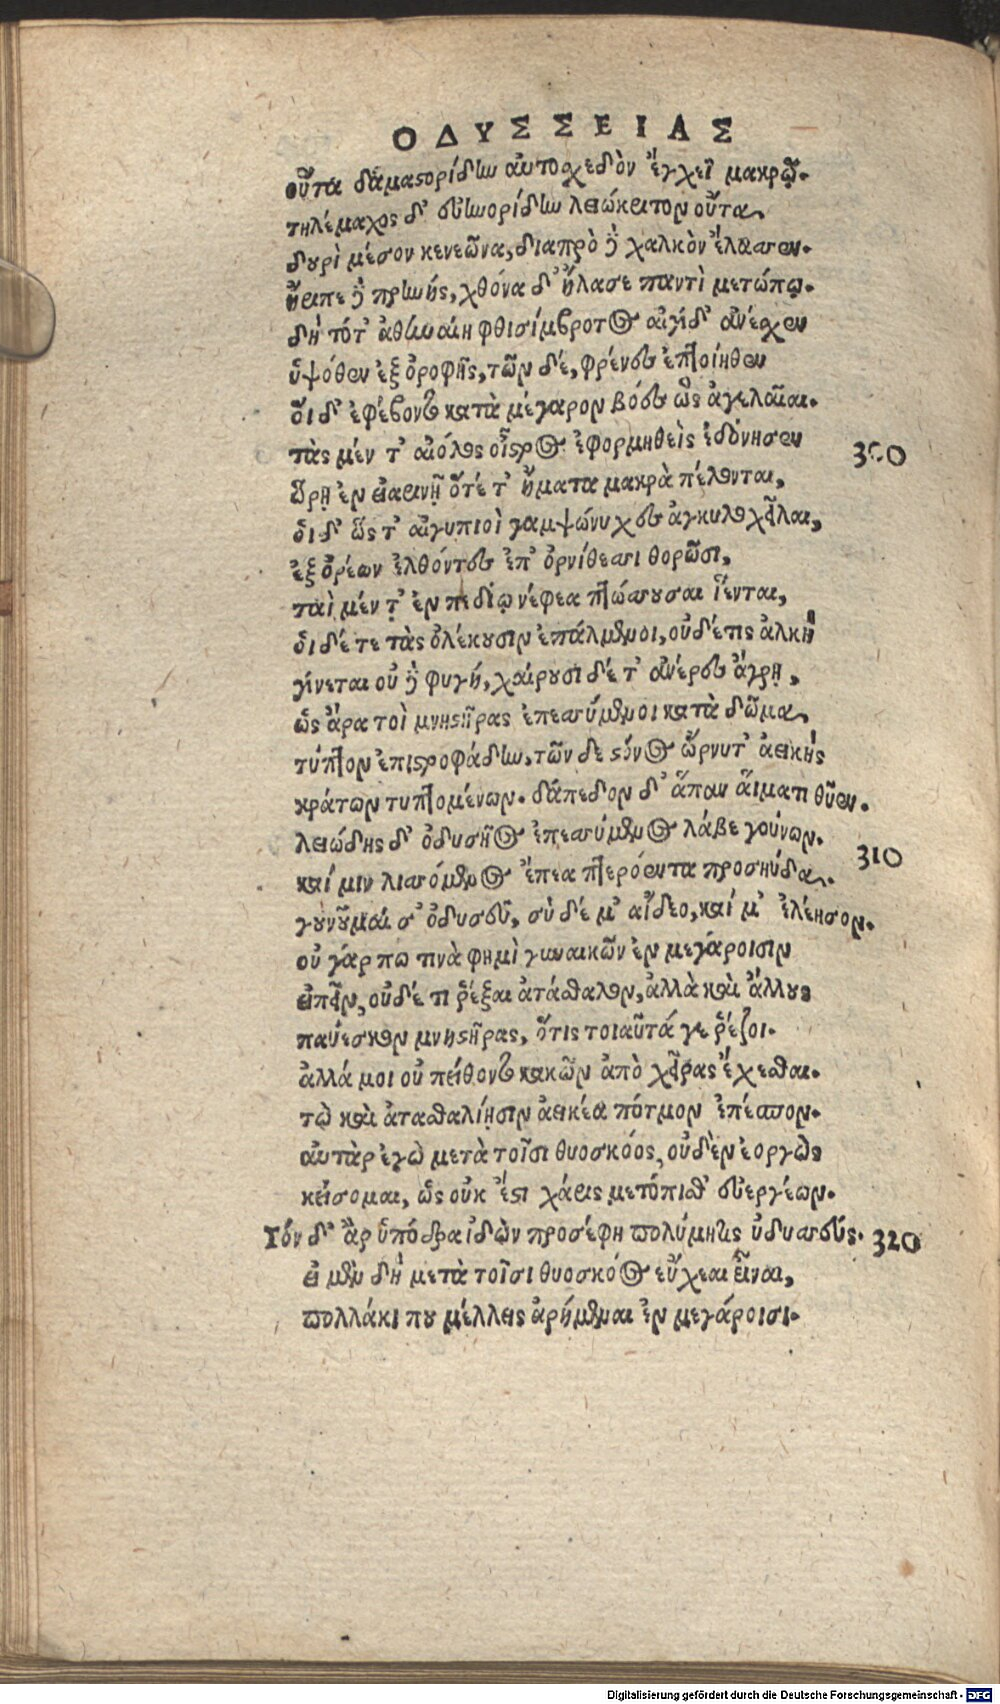 ΟΔΥΣΣΕΙΑΣ
οὖτα δαμαστορίδην αὐτοσχεδὸν ἔγχεϊ μακρῷ.
τηλέμαχος δ' εὐηνορίδην λειώκριτον οὖτα,
δουρὶ μέσον κενεῶνα, διαπρὸ δὲ χαλκὸν ἔλασσεν.
ἤειπε δὲ πρηνής, χθόνα δ' ἤλασε παντὶ μετώπῳ.
δὴ τότ' ἀθηναίη φθισίμβροτος αἰγίδ' ἀνέσχεν
ὑψόθεν ἐξ ὀροφῆς, τῶν δέ, φρένες ἐπτοίηθεν
οἵ δ' ἐφέβοντο κατὰ μέγαρον βόες ὣς ἀγελαῖαι.
τὰς μέν τ' αἰόλος οἶστρος ἐφορμηθεὶς ἐδόνησεν 300
ὥρῃ ἐν εἰαρινῇ ὅτέ τ' ἤματα μακρὰ πέλονται,
οἱ δ' ὥς τ' αἰγυπιοὶ γαμψώνυχες ἀγκυλοχεῖλαι,
ἐξ ὀρέων ἐλθόντες ἐπ' ὀρνίθεσσι θορῶσι,
ταὶ μέν τ' ἐν πεδίῳ νέφεα πτώσσουσαι ἵενται,
οἱ δέ τε τὰς ὀλέκουσιν ἐπάλμενοι, οὐδέ τις ἀλκὴ
γίνεται οὐδὲ φυγή, χαίρουσι δέ τ' ἀνέρες ἄγρῃ,
ὣς ἄρα τοὶ μνηστῆρας ἐπεσσύμενοι κατὰ δῶμα,
τύπτον ἐπιστροφάδην, τῶν δε στόνος ὤρνυτ' ἀεικὴς
κράτων τυπτομένων. δάπεδον δ' ἅπαν αἵματι θῦεν.
λειώδης δ' ὀδυσῆος ἐπεσσύμενος λάβε γούνων. 310
καί μιν λισσόμενος ἔπεα πτερόεντα προσηύδα,.
γουνοῦμαί σ' ὀδυσεῦ, σὺ δέ μ' αἴδεο, καί μ' ἐλέησον.
οὐ γάρ πω τινὰ φημὶ γυναικῶν ἐν μεγάροισιν
εἰπεῖν, οὐδέ τι ῥέξαι ἀτάσθαλον, ἀλλὰ καὶ ἄλλους
παύεσκον μνηστῆρας, ὅτις τοιαῦτά γε ῥέζοι.
ἀλλά μοι οὐ πείθοντο κακῶν ἀπὸ χεῖρας ἔχεσθαι.
τῷ καὶ ἀτασθαλίῃσιν ἀεικέα πότμον ἐπέσπον.
αὐτὰρ ἐγὼ μετὰ τοῖσι θυοσκόος, οὐδὲν ἐοργὼς
κείσομαι, ὡς οὐκ ἔστι χάρις μετόπισθ' εὐεργέων.
Τόν δ' ἂρ ὑπόδρα ἰδὼν προσέφη πολύμητις ὀδυσσεύς. 320
εἰ μὲν δὴ μετὰ τοῖσι θυοσκόος εὔχεαι εἶναι,
πολλάκι που μέλλεις ἀρήμεναι ἐν μεγάροισι.
Digitalisierung gefördert durch die Deutsche Forschungsgemeinschaft - DFG